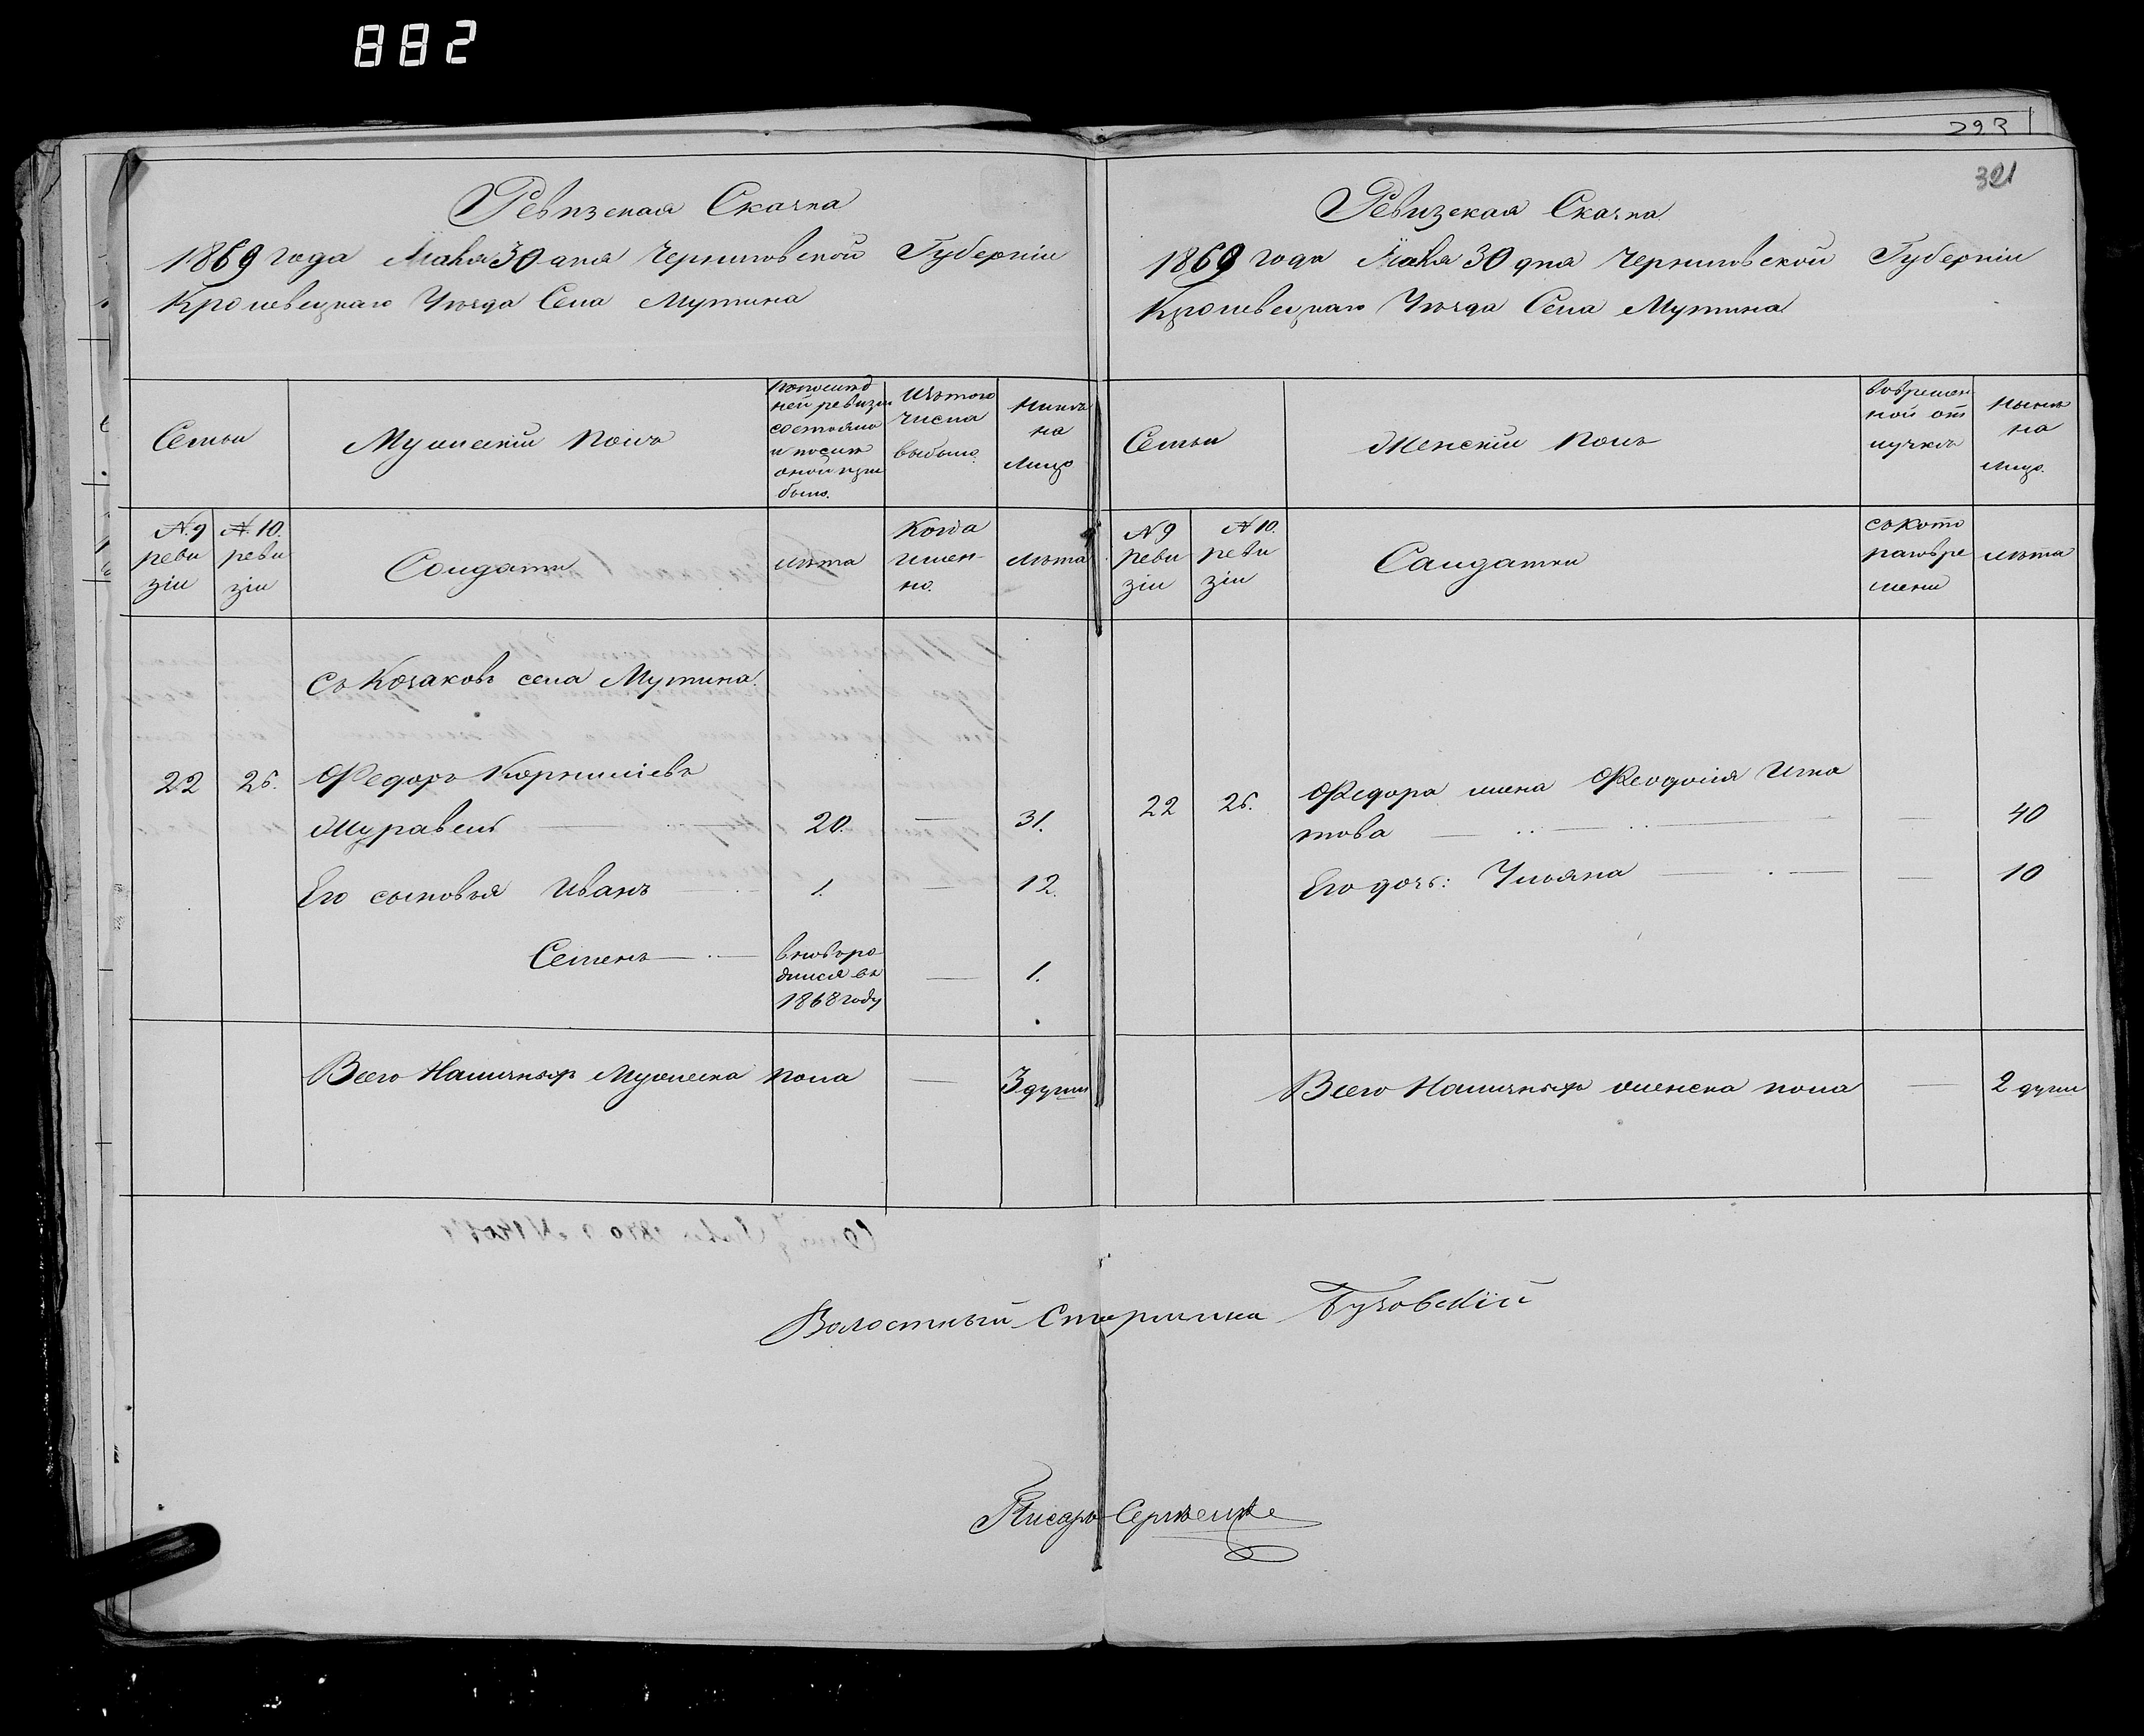 882
293
321
Ревизская Сказка
1869 года Маия 30 дня Черниговской Губерніи
Кролевецкаго Уѣзда Села Мутина
Семьи
Мужескій полъ
По послѣд
ней ревизіи
состояло
и послѣ
оной при
было.
Изъ того
числа
выбыло.
Нынѣ
на
лицо
№ 9
реви
зіи
№ 10.
реви
зіи
Солдаты
лѣта
Когда
имен-
но.
лѣта
Съ Козаковъ села Мутина.
22 25. Федоръ Корнилѣевъ
Журавель 20. — 31.
Его сыновья Иванъ 1. — 12.
Семенъ
вновь ро
дился въ
1868 году
— 1.
Всего Наличныхъ Мужеска пола — 3 души
Ревизская Сказка
1869 года Маия 30 дня Черниговской Губерніи
Кролевецкаго Уѣзда Села Мутина
Семьи
Женскій полъ
во времен
ной от
лучкѣ
Нынѣ
на
лицо.
№ 9
реви
зіи
№ 10.
реви
зіи
Салдатки
съ кото
раго вре
мени
лѣта
22 25. Федора жена Феодосія Игна
това — 40
Его дочь: Ульяна — 10
Всего Наличныхъ женска пола — 2 души
Волостный Старшина Бузовскій
Писарь